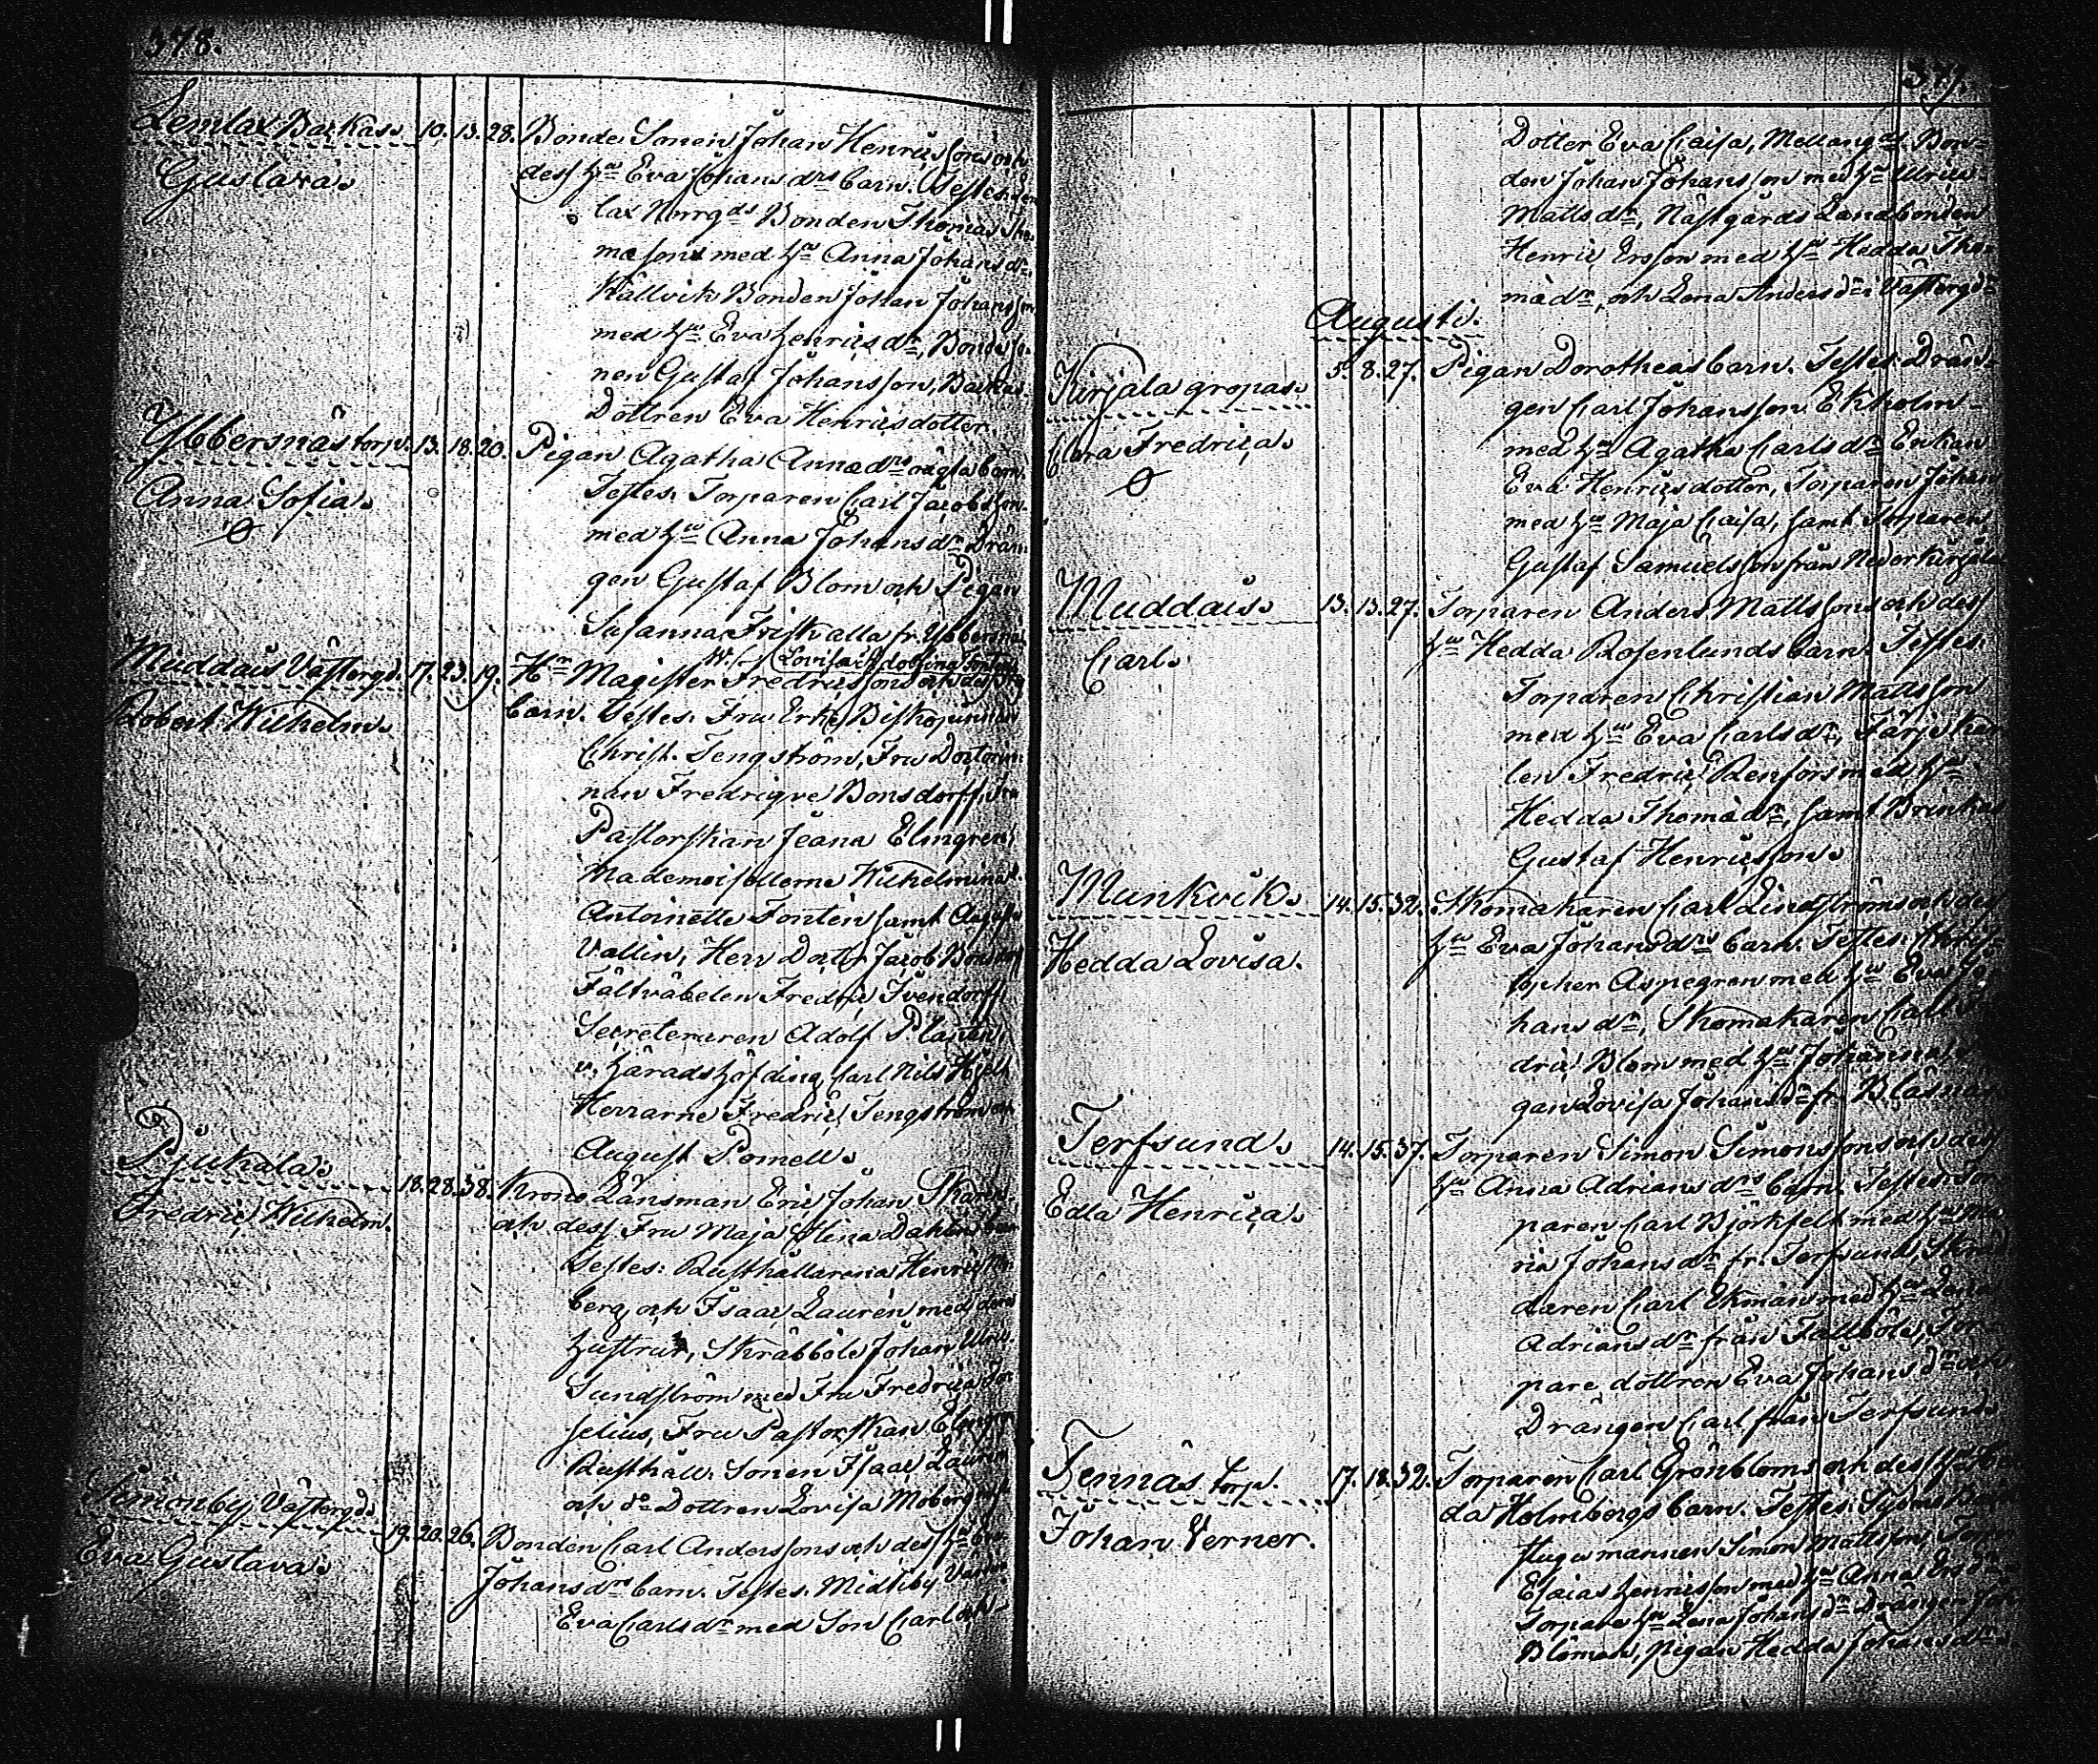 378.
Lemlax Backas. 10. 13. 28. Bonde Sonen Johan Henricssons och
Gustava. dess hu Eva Johans drs barn. Testes. Lem
lax Norrgds Bonden Thomas Tho-
massons med hu Anna Johans dr.
Källvik Bonden Johan Johansson
med hu Eva Henrics dr, Bonde So-
nen Gustaf Johansson, Backas
Dottren Eva Henricsdotter.
Ybbersnäs torp. 13. 18. 20. Pigan Agatha Annæ drs oägta barn.
Anna Sofia. Testes. Torparen Carl Jacobsson
med hu Anna Johans dr Drän-
gen Gustaf Blom och Pigan
Susanna Frisk alla fr. Ybbersnäs
Muddais Västergd. 17. 23. 19. Hr Magister Fredricssons och dess Fru
Lovisa Adolfina Fontén
Robert Wilhelm. barn. Testes. Fru Erke Biskopinnan
Christ. Tengström, Fru Doctorin-
nan Fredrique Bonsdorff, Fru
Pastorskan Jeana Elmgren,
Mademoisellerne Wilhelmina
Antoinette Fontén samt Augusta
Vallin, Herr Doctor Jacob Bonsdorff
Fältväbelen Fredric Ivendorff,
Secreteraren Adolf Planan,
v. häradshöfding Carl Nils Hjelt
Herrarne Fredric Tengström och
August Pomell.
Pjukala. 18. 28. 38. Krono Länsman Eric Johan Skarin
Fredric Wilhelm. och dess Fru Maja Stina Dahlén barn
Testes: Rusthållarena Henric Mo
berg och Isaac Laurén med deras
hustrur, Skräbböle Johan Ulric
Sundström med Fru Fredrica
selius, Fru Pastorskan Elmgren
Rusthåll. Sonen Isaac Laurén
och do Dottren Lovisa Moberg
Simonby Västergd. 19. 20. 26. Bonden Carl Anderssons och dess hu Eva
Eva Gustava. Johans drs barn. Testes. Midtiby
Eva Carls dr med Son Carl och
379.
Dotter Eva Caisa, Mellangds Bon-
den Johan Johansson med hu Ulrica
Matts dr, Näsgårds Landbonden
Henric Ersson med hu Hedda Tho-
mæ dr, och Lena Anders dr i Västergd
Augusti.
Kirjala gropas. 5. 8. 27. Pigan Dorotheas barn. Testes. Drän-
gen Carl Johansson Ekholm
Clara Fredrica. med hu Agatha Carls dr Enkan
Eva Henricsdotter, Torparen Johan
med hu Maja Caisa, samt Torparen
Gustaf Samuelsson från Nederkirjala
Muddais. 13. 13. 27. Torparen Anders Mattssons och dess
Carl. hu Hedda Rosenlunds barn. Testes.
Torparen Christian Mattsson
med hu Eva Carls dr, Färjekar
len Fredric Renfors med hu
Hedda Thomæ dr, samt Brinkas
Gustaf Henricsson.
Munkvik. 14. 15. 32. Skomakaren Carl Lindströms och dess
Hedda Lovisa. hu Eva Johans drs barn. Testes. Chris-
topher Aspegren med hu Eva Jo
hans dr, Skomakaren Carl
dric Blom med hu Johanna
gan Lovisa Johans dr fr. Blåsnäs
Terfsund. 14. 15. 37. Torparen Simon Simonssons och dess
Edla Henrica. hu Anna Adrians drs barn. Testes. Tor
paren Carl Björkfelt med hu Ma
ria Johans dr fr. Terfsund, Skräd
daren Carl Ekman med hu Lena
Adrians dr från Fallböle, Tor-
pare dottren Eva Johans dr och
Drängen Carl från Terfsund.
Tennäs torp. 17. 18. 32. Torparen Carl Grönbloms och dess hu He
da Holmbergs barn. Testes. Sydmo
Johan Verner. stugumannen Simon Mattsson,
Esaias Henricsson med hu Anna Ers dr,
Torpare hu Lena Johans dr Drängen Joh
Blöman, pigan Hedda Johans dr